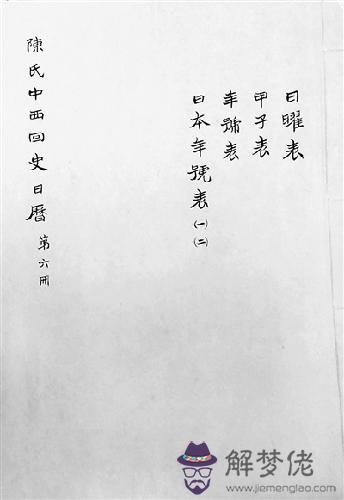 日曜表
甲子表
年號表
日本年號表(一)(二)
陳氏中西回史日曆 第六冊
解梦佬
www.jiemenglao.com